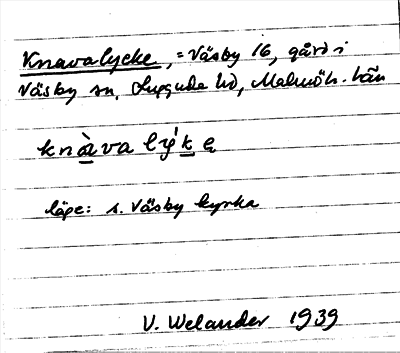 Knavalycke, = Väsby 16, gård i
Väsby sn, Luggude hd, Malmöh. län
knàva lý́kę
läge: s. Väsby kyrka
V. Welander 1939